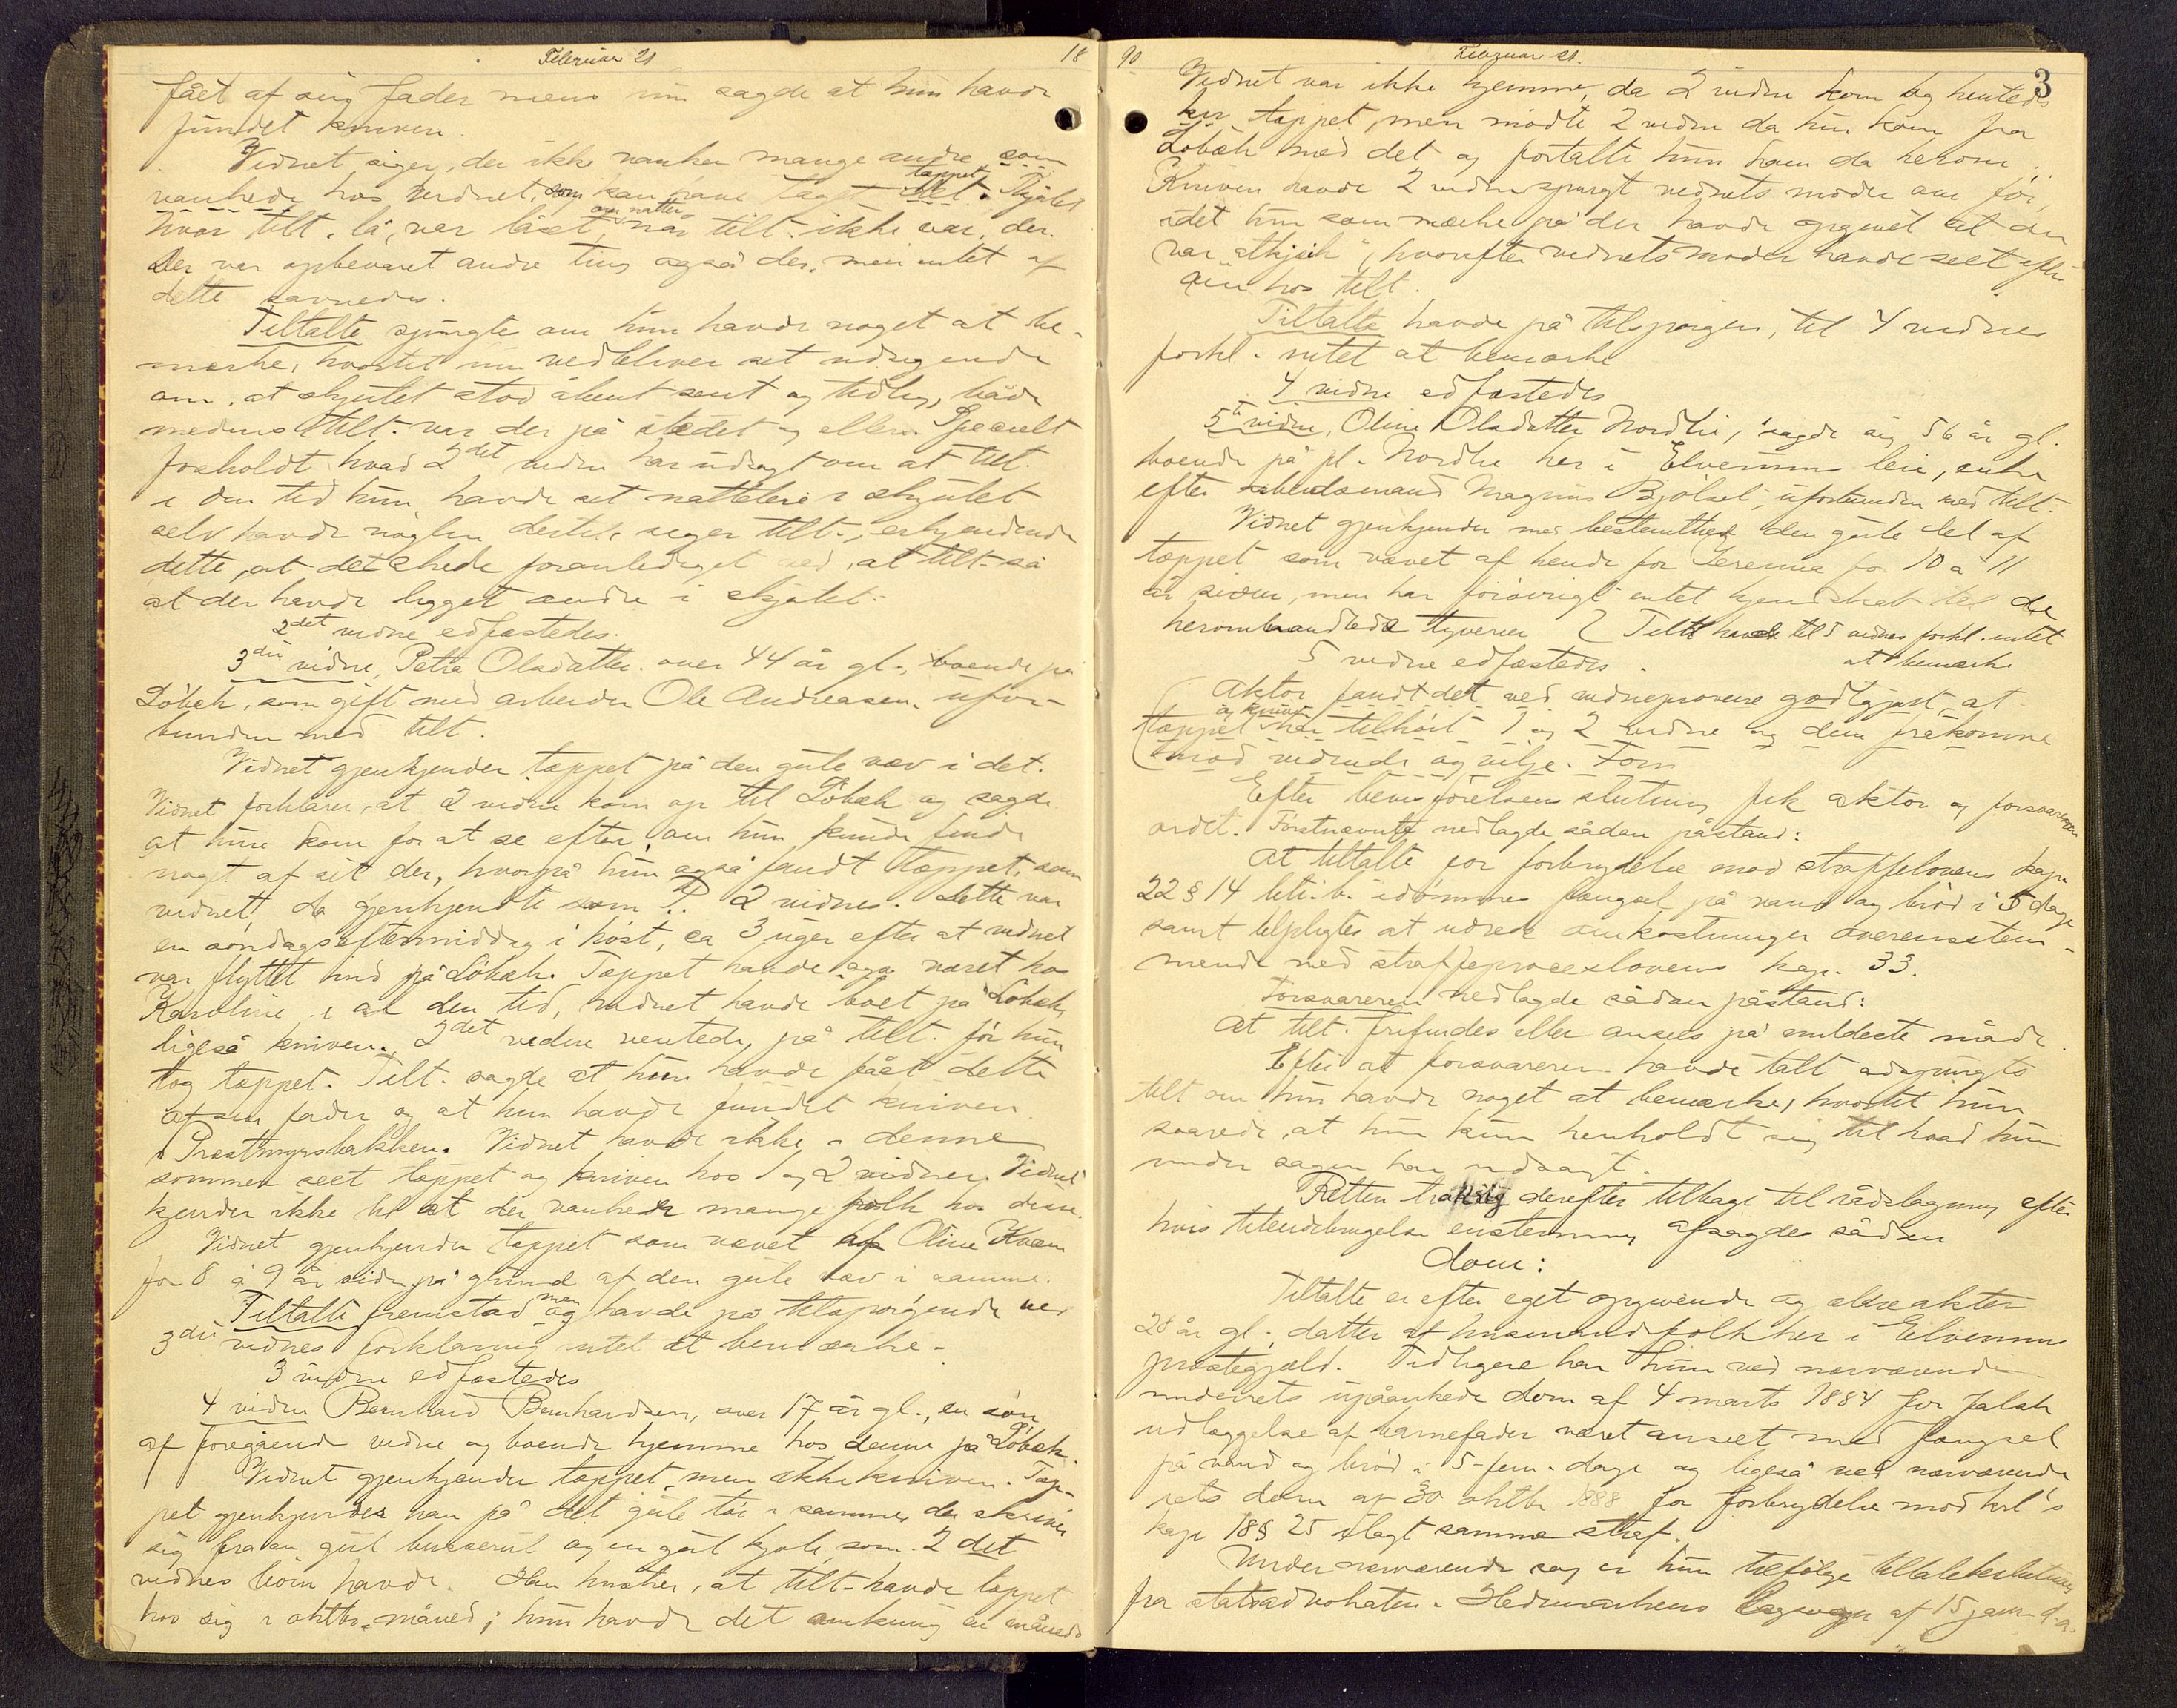 Februar 21
18
fået af sig fader mens hun sagde at hun havde
fundet kniven.
Vidnet siger, der ikke vanker mange andre som
vankede hos vidnet, som kan have tagt tæppet det. Skjulet
hvor tilt. lå, var låset, om natten når tilt. ikke var der.
Der var opbevaret andre ting også der, men intet af
dette savnedes.
Tiltalte spurgtes om hun havde noget at be-
mærke, hvortil hun vedbliver sit udsigende
om, at skjulet stod åbent sent og tidlig, både
medens tilt. var der på stedet og ellers. Specielt
foreholdt hvad 2det vidne har udsagt om at tilt.
i den tid hun havde sit natteleie i skjulet
selv havde nøglen dertil, siger tilt., erkjendende
dette, at det skede foranlediget ved, at tilt. så
at der havde ligget andre i skjulet.
2det vidne edfæstedes.
3die vidne, Petra Olsdatter. over 44 år gl., boende på
Löbak, som gift med arbeider Ole Andreasen. ufor-
bunden med tilt.
Vidnet gjenkjender tæppet på den gule væv i det.
Vidnet forklarer, at 2 vidne kom op til Löbak og sagde
at hun kom for at se efter, om hun kunde finde
noget af sit der, hvorpå hun også fandt tæppet, som
vidnet da gjenkjendte som 2 vidnes. Dette var
en söndagseftermiddag i höst, ca 3 uger efter at vidnet
var flyttet ind på Löbak. Tæppet havde også været hos
Karoline i al den tid, vidnet havde boet på Löbak,
ligeså kniven. 2det vidne ventede på tilt. för hun
tog tæppet. Tilt. sagde at hun havde fået dette
af sin fader og at hun havde fundet kniven
i Præstmyrsbakken. Vidnet havde ikke denne
sommer seet tæppet og kniven hos 1 og 2 vidner. Vidnet
kjender ikke til at der vankede mange folk hos disse.
Vidnet gjenkjender tæppet som vævet af Oline Kværn
for 8 à 9 år siden på grund af den gule væv i samme.
Tiltalte fremstod men og havde på tilspörgende ved
3die vidnes forklaring intet at bemærke.
3 vidne edfæstedes
4 vidne Bernhard Bernhardsen, over 17 år gl., en sön
af foregående vidne og boende hjemme hos denne på Löbak.
Vidnet gjenkjender tæppet, men ikke kniven. Tæp-
pet gjenkjendes han på det gule töi i samme der skriver
sig fra en gul busserul og en gul kjole, som 2det
vidnes börn havde. Han husker, at tilt. havde tæppet
hos sig i oktbr. måned; hun havde det omkring en måned
90
Februar 21.
3
Vidnet var ikke hjemme, da 2 vidne kom og hentede
tæppet, men mödte 2 vidne da hun kom fra
Löbak med det og fortalte hun ham da herom.
Kniven havde 2 vidne spurgt vidnets moder om för,
idet hun som mærke på den havde opgivet at den
var "skjæk", hvorefter vidnets moder havde seet efter
den hos tilt.
Tiltalte havde på tilspörgen, til 4 vidnes
forkl. intet at bemærke
4 vidne edfæstedes
5te vidne, Oline Olsdatter Nordli, sagde sig 56 år gl.
boende på pl. Nordli her i Elverums leir, enke
efter arbeidsmand Magnus Bjölset, uforbunden med tilt.
Vidnet gjenkjender med bestemthed den gule del af
tæppet som vævet af hende for Jerenna for 10 a 11
år siden, men har foröivrigt intet kjendskab til de
heromhandlede tyverier Tiltl havde til 5 vidnes forkl. intet
at bemærke
5 vidne edfæstedes.
Aktor fandt det ved vidneprovene godtgjort, at
tæppet og kniven har tilhört 1 og 2 vidne og dem frakomne
mod vidende og vilje. Fors
Efter bevisförelsens slutning fik aktor og forsvareren
ordet. Förstnævnte nedlagde sådan påstand:
At tiltalte for forbrydelse mod straffelovens kap.
22 § 14 litr. b. idömmes fængsel på vand og bröd i 5 dage
samt tilpligtes at udrede omkostninger overensstem-
mende med straffeproceslovens kap. 33.
Forsvareren nedlagde sådan påstand:
At tilt. frifindes eller ansees på mildeste måde.
Efter at forsvareren havde talt adspurgtes
tilt. om hun havde noget at bemærke, hvortil hun
svarede, at hun kun henholdt sig til hvad hun
under sagen har udsagt.
Retten trak sig derefter tilbage til rådslagning efter
hvis tilendebringelse enstemmig afsagdes sådan
dom:
Tiltalte er efter eget opgivende og ældre akter
28 år gl., datter af husmandsfolk her i Elverums
præstegjæld. Tidligere har hun ved nærværende
underrets upåankede dom af 4 marts 1884 for falsk
udlæggelse af barnefader været anseet med fængsel
på vand og bröd i 5-fem-dage og ligeså ved nærværende
rets dom af 30 oktbr 1888 for forbrydelse mod krl's
kap. 18 § 25 ilagt samme straf.
Under nærværende sag er hun tilfölge tiltalebeslutning
fra statsadvokaten i Hedemarkens lagsogn af 15 jan. d.a.